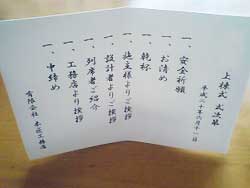 上棟式 式次第
平成二十年六月十一日
一、安全祈願
一、お清め
一、乾杯
一、施主様よりご挨拶
一、設計者よりご挨拶
一、列席者ご紹介
一、工務店よりご挨拶
一、中締め